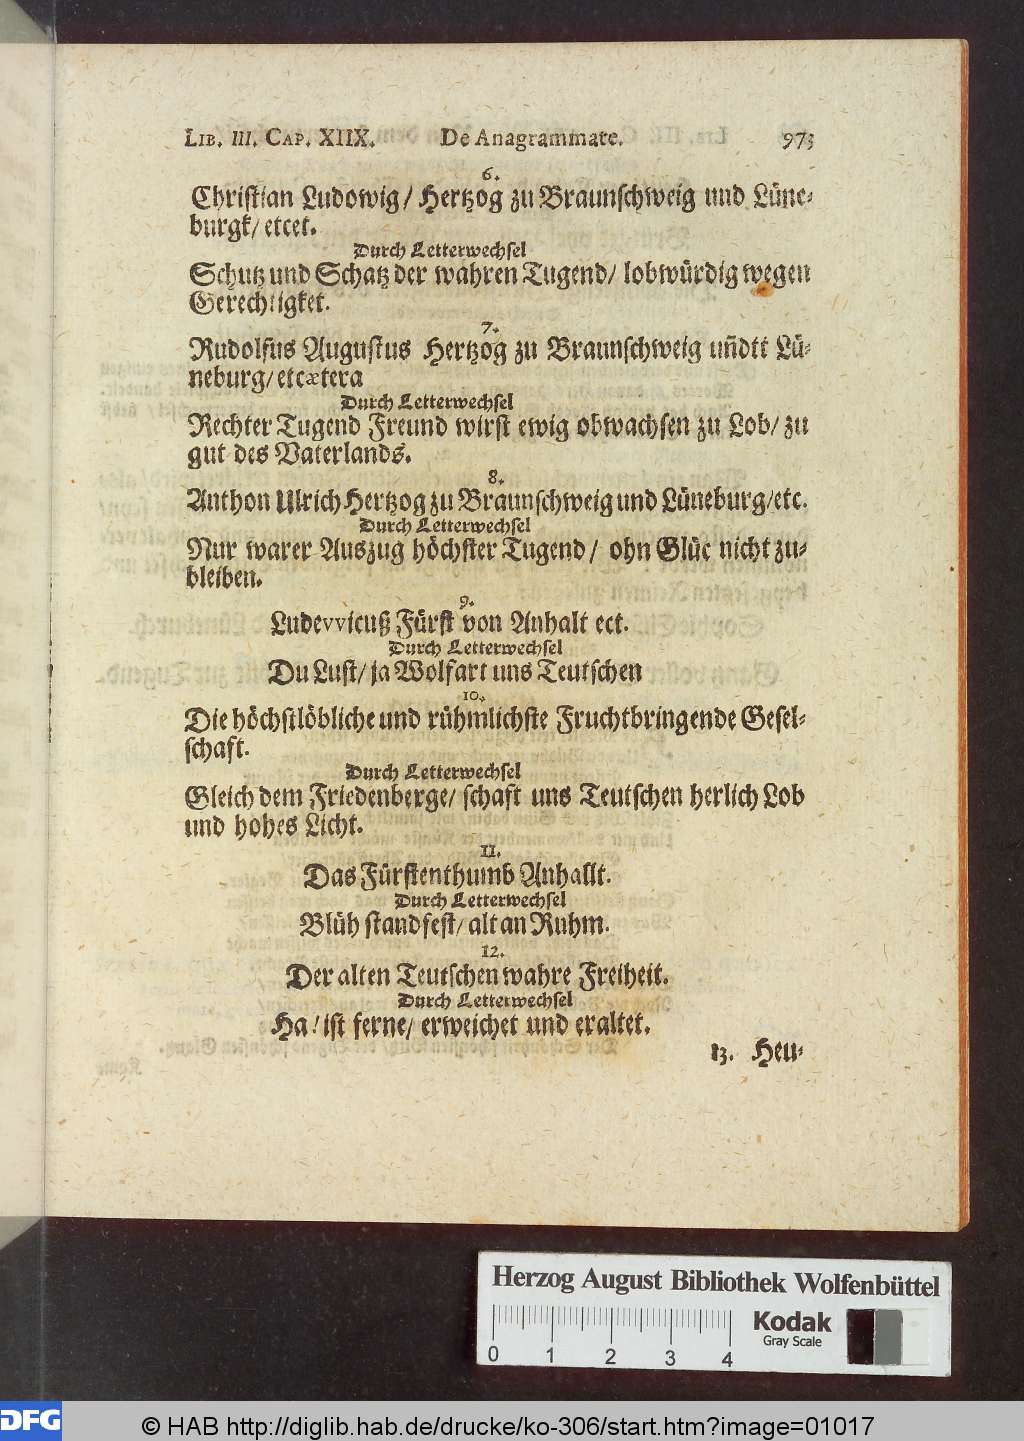 LIB. III. CAP. XIIX. De Anagrammate. 973
6.
Christian Ludowig/ Hertzog zu Braunschweig und Lüne-
burgk/ etcet.
Durch Letterwechsel
Schutz und Schatz der wahren Tugend/ lobwürdig wegen
Gerechtigket.
7.
Rudolfus Augustus Hertzog zu Braunschweig uñdtt Lü-
neburg/ etcætera
Durch Letterwechsel
Rechter Tugend Freund wirst ewig obwachsen zu Lob/ zu
gut des Vaterlands.
8.
Anthon Ulrich Hertzog zu Braunschweig und Lüneburg/etc.
Durch Letterwechsel
Nur warer Auszug höchster Tugend/ ohn Glüc nicht zu-
bleiben.
9.
Ludevvicuß Fürst von Anhalt ect.
Durch Letterwechsel
Du Lust/ ja Wolfart uns Teutschen
10.
Die höchstlöbliche und rühmlichste Fruchtbringende Gesel-
schaft.
Durch Letterwechsel
Gleich dem Friedenberge/ schaft uns Teutschen herlich Lob
und hohes Licht.
11.
Das Fürstenthumb Anhallt.
Durch Letterwechsel
Blüh standfest/ alt an Ruhm.
12.
Der alten Teutschen wahre Freiheit.
Durch Letterwechsel
Ha! ist ferne/ erweichet und eraltet.
13. Heu-
Herzog August Bibliothek Wolfenbüttel
Kodak
Gray Scale
0 1 2 3 4
DFG © HAB http://diglib.hab.de/drucke/ko-306/start.htm?image=01017